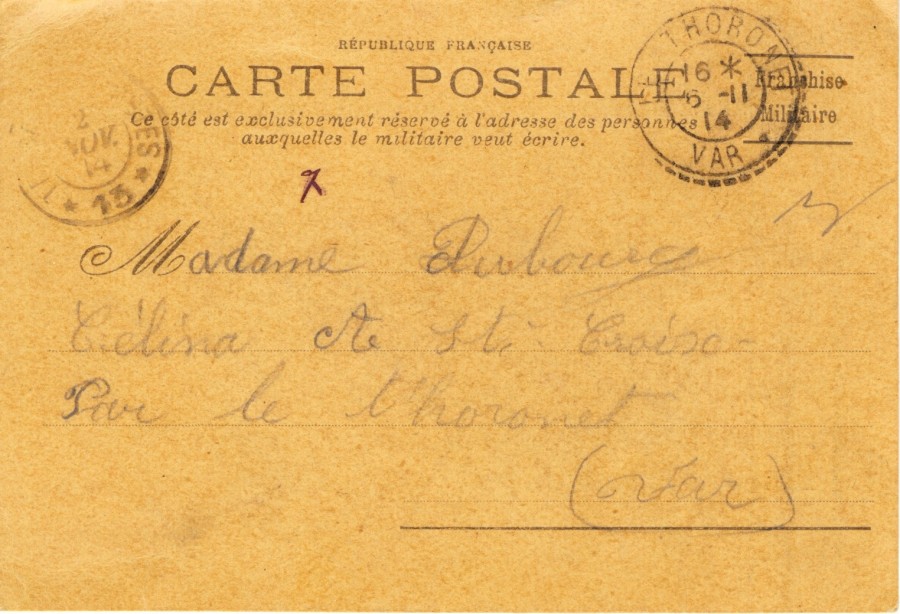 RÉPUBLIQUE FRANÇAISE
CARTE POSTALE
Franchise
Militaire
Ce côté est exclusivement réservé à l'adresse des personnes
auxquelles le militaire veut écrire.
THORONET
16 *
6 -11
14
VAR
2
NOV.
14
* 13 *
Madame Dubourg
Célina A St. Croise
Par le thoronet
(Var)